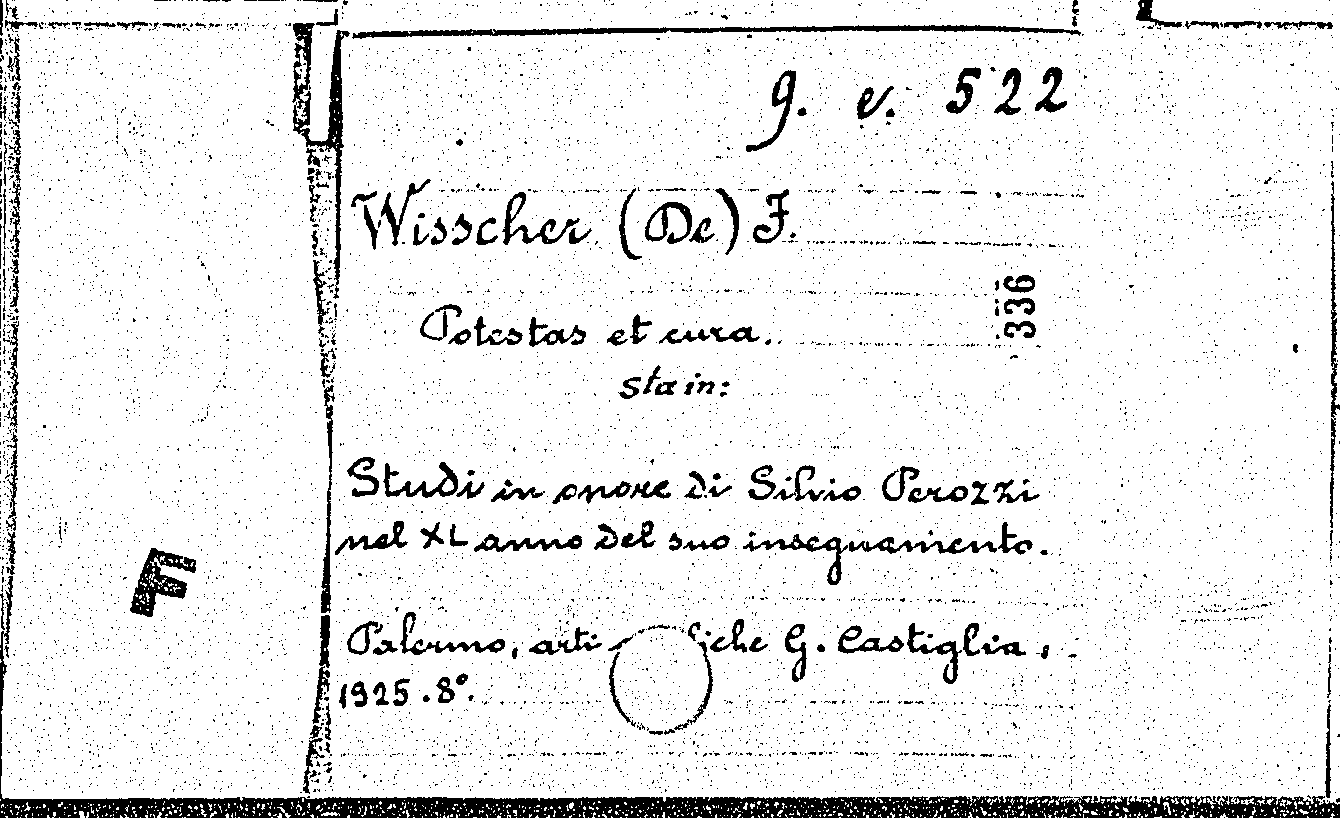 g. v. 522
Wisscher (De) F.
336
Potestas et cura.
Sta in:
Studi in onore di Silvio Perozzi
nel XL anno del suo insegnamento.
F
Palermo, arti fiche G. Castiglia,
1925. 8°.